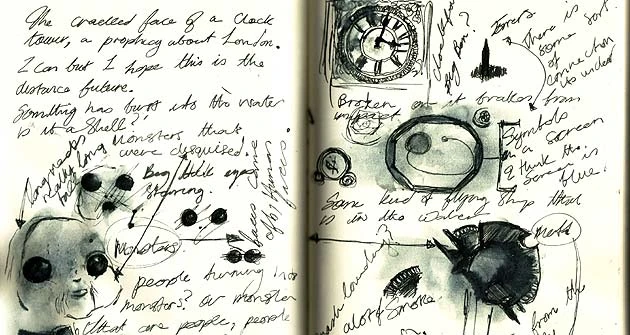 The cracked face of a clock
tower, a prophecy about London.
I can but I hope this is the
distance future.
Something has burst into the water
is it a shell?
Monsters that
were disguised.
Long necks
really long
Big black eyes
staring.
faces come
off human
faces.
Monsters
people turning into
monsters? Or monsters
that are people, people
clockface
Big Ben?
There is
some sort
of
connection
Broken or it brakes from
impact
Symbols
on a screen
I think the
screen is
blue.
Some kind of flying ship that
is in the water
loud
alot of smoke.
from the